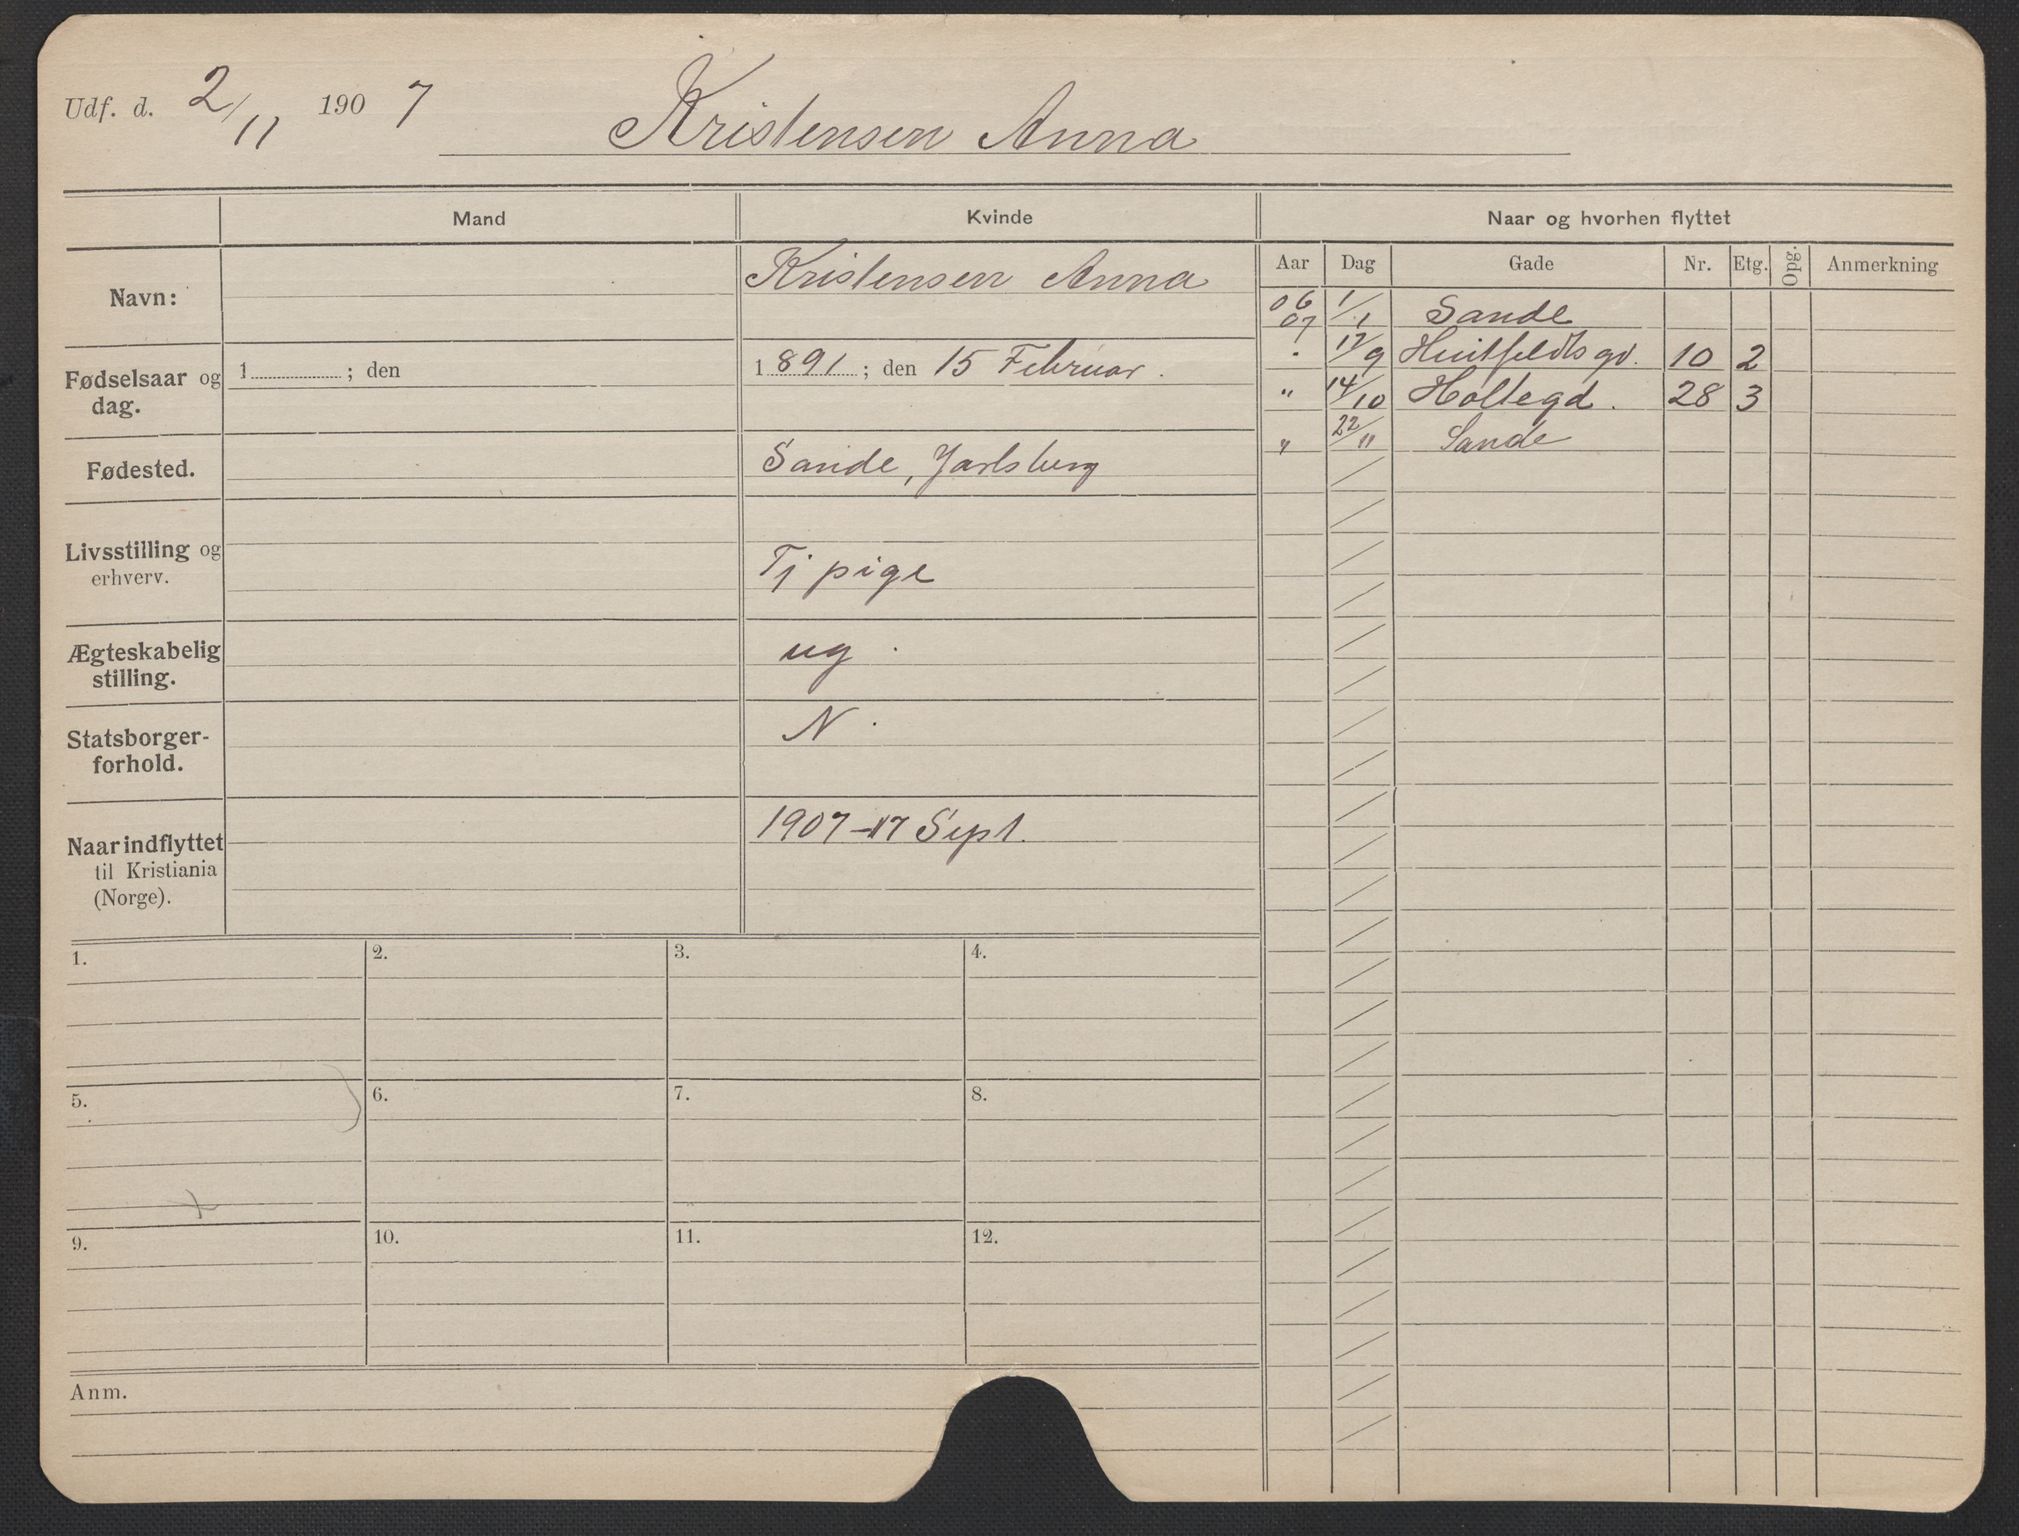 Udf. d. 2/11 1907 Kristensen Anna
Mand Kvinde Naar og hvorhen flyttet
Aar Dag Gade Nr. Etg. Opg. Anmerkning
Navn: Kristensen Anna
06 07 1/1 Sande
" 17/9 Huitfeldts gd. 10 2
" 14/10 Holtegd. 28 3
" 22/11 Sande
Fødselsaar og
dag.
1 ; den
1891 ; den 15 Februar.
Fødested. Sande, Jarlsberg
Livsstilling og
erhverv.
Tj pige
Ægteskabelig
stilling.
ug.
Statsborger-
forhold.
N.
Naar indflyttet
til Kristiania
(Norge).
1907-17 Sept.
1. 2. 3. 4.
5. 6. 7. 8.
9. 10. 11. 12.
Anm.